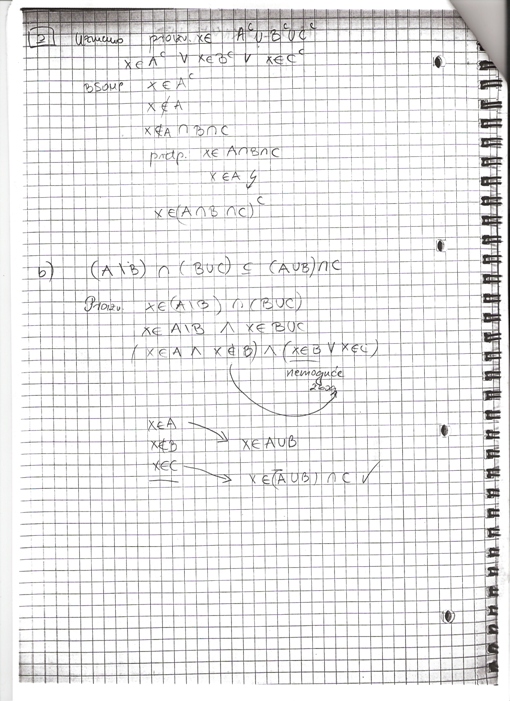 2 Uzmimo proizv. x∈ A^c∪B^c∪C^c
x∈A^c ∨ x∈B^c ∨ x∈C^c
BSOMP x∈A^c
x∉A
x∉A∩B∩C
pretp. x∈A∩B∩C
x∈A ↯
x∈(A∩B∩C)^c
b) (A\B) ∩ (B∪C) ⊆ (A∪B)∩C
Proizv. x∈(A\B) ∩ (B∪C)
x∈A\B ∧ x∈B∪C
(x∈A ∧ x∉B) ∧ (x∈B ∨ x∈C)
nemoguće
zbog
x∈A
x∉B x∈A∪B
x∈C
x∈(A∪B)∩C ✓